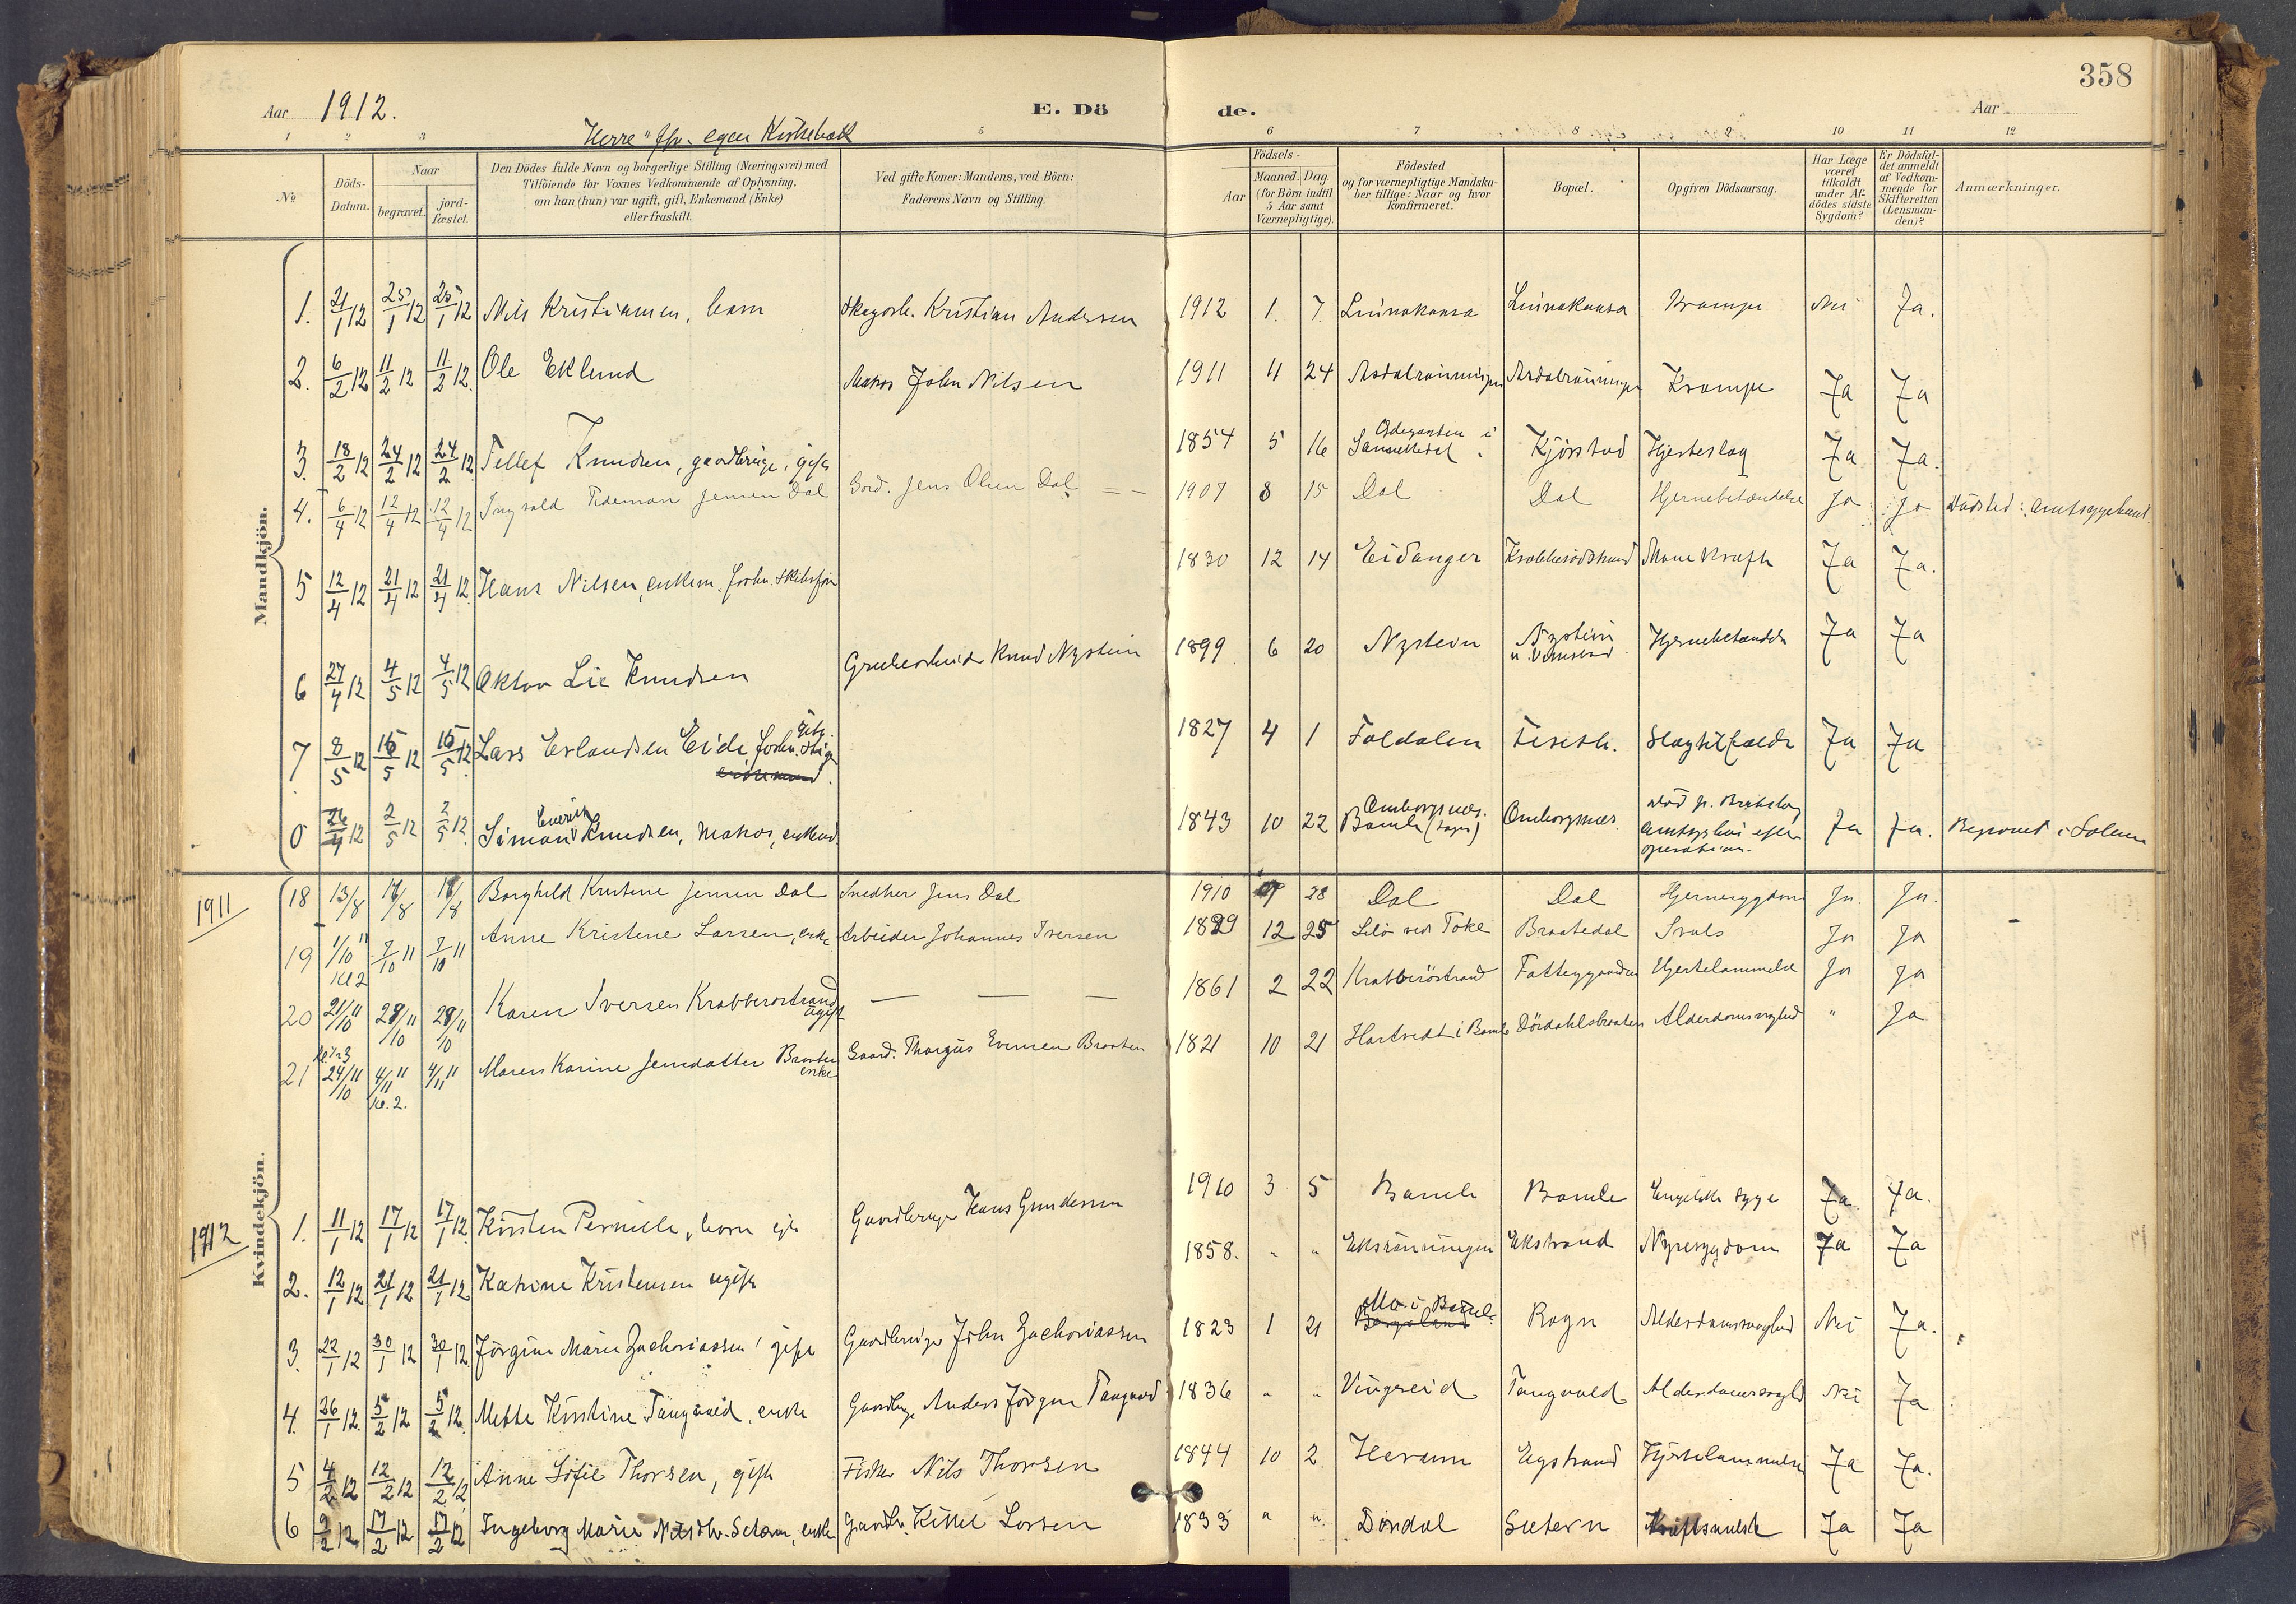 358
Aar 1912. E. Dö de. Aar
Herre" egen Kirkebok
1 2 3 5 6 7 8 9 10 11 12
No
Döds-Datum.
Naar
begravet.
jord-fæstet.
Den Dödes fulde Navn og borgerlige Stilling (Næringsvei) med
Tilföiende for Voxnes Vedkommende af Oplysning,
om han (hun) var ugift, gift, Enkemand (Enke)
eller fraskilt.
Ved gifte Koner: Mandens, ved Börn:
Faderens Navn og Stilling.
Födsels-
Aar
Maaned. Dag.
(for Börn indtil
5 Aar samt
Værnepligtige).
Födested
og for værnepligtige Mandska-
ber tillige: Naar og hvor
konfirmeret.
Bopæl.
Opgiven Dödsaarsag.
Har Læge
været
tilkaldt
under Af-
dödes sidste
Sygdom?
Er Dödsfal-
det anmeldt
af Vedkom-
mende for
Skifteretten
(Lensman-
den)?
Anmærkninger.
Mandkjön.
1. 21/1 12 25/1 12 25/1 12 Nils Kristiansen, barn Kristian Andersen 1912 1. 7. Krampe Nei Ja.
2. 6/2 12 11/2 12 11/2 12. Ole Eklund Matros John Nilsen 1911 11 24 Krampe Ja Ja
3. 18/2 12 24/2 12 24/2 12. Tellef Knudsen, gaardbruger, gift 1854 5 16 i Sannikedal Kjörstad Hjerteslag Ja Ja.
4. 6/4 12 12/4 12 12/4 12 Ingvald Tideman Jensen Dal Gaard. Jens Olsen Dal 1907 8 15 Dal Dal Hjernebetændelse Ja Ja Dödsted: Amtssygehuset
5 12/4 12 21/4 12 21/4 12. Hans Nilsen, enkem. forhv. 1830 12 14 Eidanger Krabberödstrand Ja Ja.
6 27/4 12 4/5 12 4/5 12 Oktav Lie Knudsen Grubearbeider Knud Nystein 1899 6 20 Nystein Nystein Hjernebetændelse Ja Ja
7 8/5 12 16/5 12 16/5 12 Lars Erlandsen Eide, forhv. 1827 4 1 Foldalen Slagtilfælde Ja Ja
26/4 12 2/5 12 2/5 12. Simon Knudsen, matros, enkem. 1843 10 22 Bamle Omborgsnæs. Amtssyghus efter operation. Ja Ja. Begravet i Solum
1911
18 13/8 Borghild Kristine Jensen Dal Snedker Jens Dal 1910 28 Dal Dal Hjernesygdom Ja. Ja.
19 1/10 11 7/10 11 7/10 11 Anne Kristine Larsen, enke Arbeider Johannes Iversen 12 25 ved Toke Braatedal Ja Ja
Kl 2
20 21/10 11 28/10 11 28/10 11 Karen Iversen Krabberöstrand ugift — — — 1861 2 22 Krabberöstrand Fattiggaarden Hjertelammelse Ja Ja
21 24/10 11 4/11 11 4/11 11 Maren Karine Jensdatter Braaten enke Gaard. Evensen Braaten 1821 10 21 Hartvedt i Bamle Dördahlsbraaten Alderdomssvaghed " Ja
Kl. 2.
Kvindekjön.
1912
1. 11/1 12 17/1 12 17/1 12. Kirsten Pernille, barn Gaardbruger Hans Gundersen 1910 3 5 Bamle Bamle Engelske syge Ja. Ja.
2. 12/1 12 21/1 12 21/1 12 Katrine Kristensen ugift 1858. " " Eksrönningen Ekstrand Nyresygdom Ja Ja
3. 22/1 12 30/1 12 30/1 12 Jörgine Marie Zachariassen, gift Gaardbruger John Zachariassen 1823 1 21 i Bamle Rogn Alderdomssvaghed Nei Ja.
4. 26/1 12. 5/2 12 5/2 12. Mette Kirstine Tangvald, enke Gaardbruger Anders Jörgen Tangvald 1836 " " Vingereid Tangvald Alderdomssvaghed Nei Ja
5 4/2 12 12/2 12 12/2 12 Anne Sofie Thorsen, gift Fisker Nils Thorsen 1844 10 2. Herum Egstrand Hjertelammelse Ja Ja.
6 9/2 12 17/2 12 17/2 12 Ingeborg Marie enke Gaardbr. Kittel Larsen 1833 " " Dördal Sætern Kræftsvulst Ja Ja